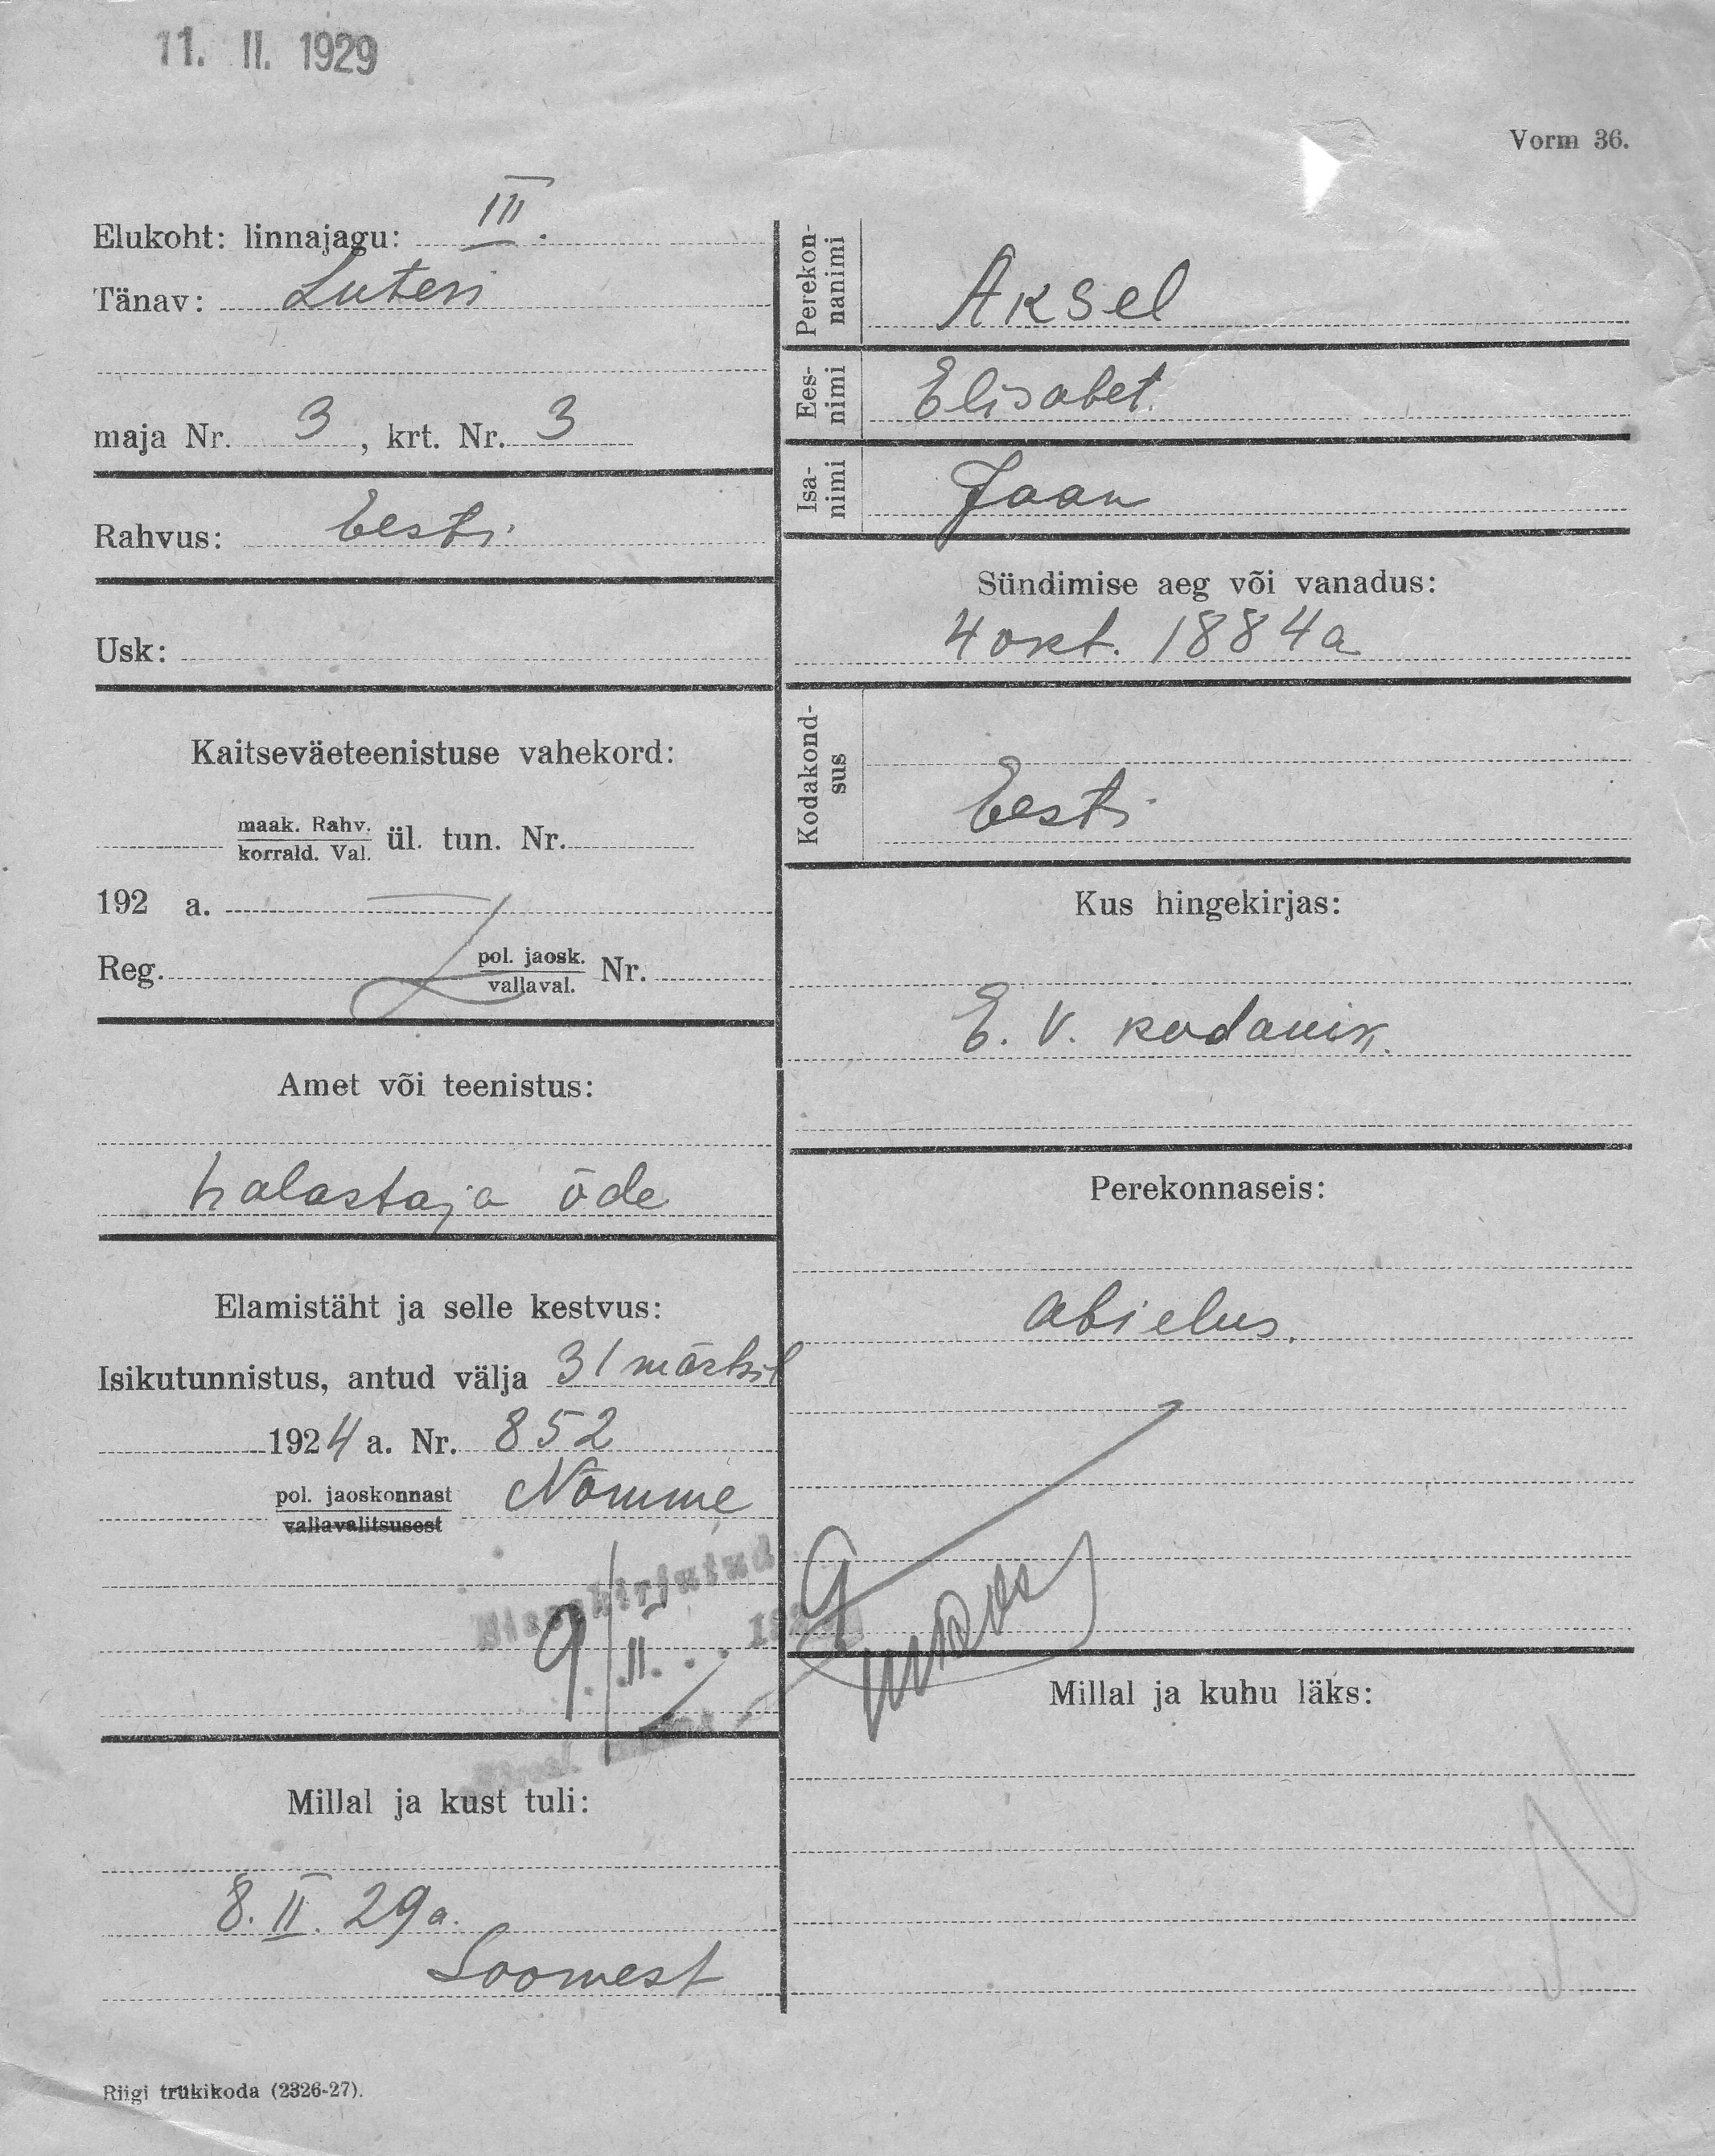 11. II. 1929
Vorm 36.
Elukoht: linnajagu: III.
Tänav: Luteri
maja Nr. 3, krt. Nr. 3
Rahvus: Eesti
Usk:
Kaitseväeteenistuse vahekord:
maak. Rahv.
korrald. Val.
ül. tun. Nr.
192 a.
Reg. pol. jaosk.
vallaval.
Nr.
Amet või teenistus:
halastaja õde
Elamistäht ja selle kestvus:
Isikutunnistus, antud välja 31 märtsil
1924 a. Nr. 852
pol. jaoskonnast Nõmme
vallavalitsusest
Sissekirjutud
9/II. 192
Millal ja kust tuli:
8. II. 29a.
Soomest
Riigi trükikoda (2326-27).
Perekonnanimi
Aksel
Eesnimi
Elisabet
Isanimi
Jaan
Sündimise aeg või vanadus:
4 okt. 1884 a
Kodakondsus
Eesti
Kus hingekirjas:
E. V. kodanik.
Perekonnaseis:
abielus.
Millal ja kuhu läks: